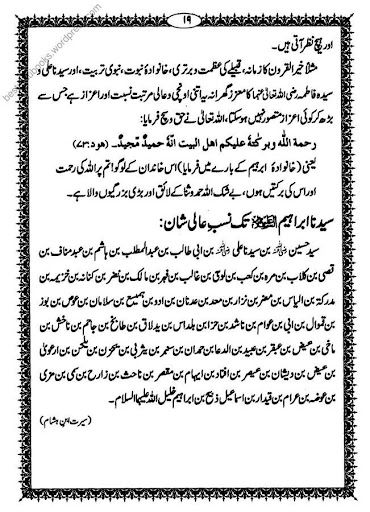 ۱۹
اور ہیچ نظر آتی ہیں۔
مثلاً خیر القرون کا زمانہ، قبیلے کی عظمت و برتری، خانوادۂ نبوت، نبوی تربیت، اور سیدنا علی و
سیدہ فاطمہ رضی اللہ تعالیٰ عنہما کا معزز گھرانہ یہ اتنی اونچی و عالی مرتبت نسبت اور اعزاز ہے جس سے
بڑھ کر کوئی اعزاز متصور نہیں ہو سکتا، اللہ تعالیٰ نے حق و سچ فرمایا:
رحمة اللّٰه وبركتهٗ عليكم اهل البيت انّهٗ حميدٌ مجيدٌ۔ (ھود:۷۳)
یعنی (خانوادۂ ابراہیم کے بارے میں فرمایا) اس خاندان کے لوگو! تم پر اللہ کی رحمت
اور اس کی برکتیں ہوں، بے شک اللہ حمد و ثنا کے لائق اور بڑی بزرگیوں والا ہے۔
سیدنا ابراہیم علیہ السلام تک نسب عالی شان:
سید حسین بن سیدنا علی بن ابی طالب بن عبد المطلب بن ہاشم بن عبد مناف بن
قصی بن کلاب بن مرہ بن کعب بن لوی بن غالب بن فہر بن مالک بن نضر بن کنانہ بن خزیمہ بن
مدرکۃ بن الیاس بن مضر بن نزار بن معد بن عدنان بن ادو بن ہمیسع بن سلامان بن عوض بن بوز
بن قموال بن ابی بن عوام بن ناشد بن حزا بن بلداس بن یدلاق بن طابخ بن جاحم بن ناحش بن
ماخی بن عیض بن عبقر بن عبید بن الدعا بن حمدان بن سنبر بن یثربی بن یحزن بن یلحن بن ارعوی
بن عیض بن دیشان بن عیصر بن افناد بن ایہام بن مقصر بن ناحث بن زارح بن سمی بن مزی
بن عوضہ بن عرام بن قیدار بن اسماعیل ذبیح بن ابراہیم خلیل اللہ علیہما السلام۔
(سیرت ابن ہشام)